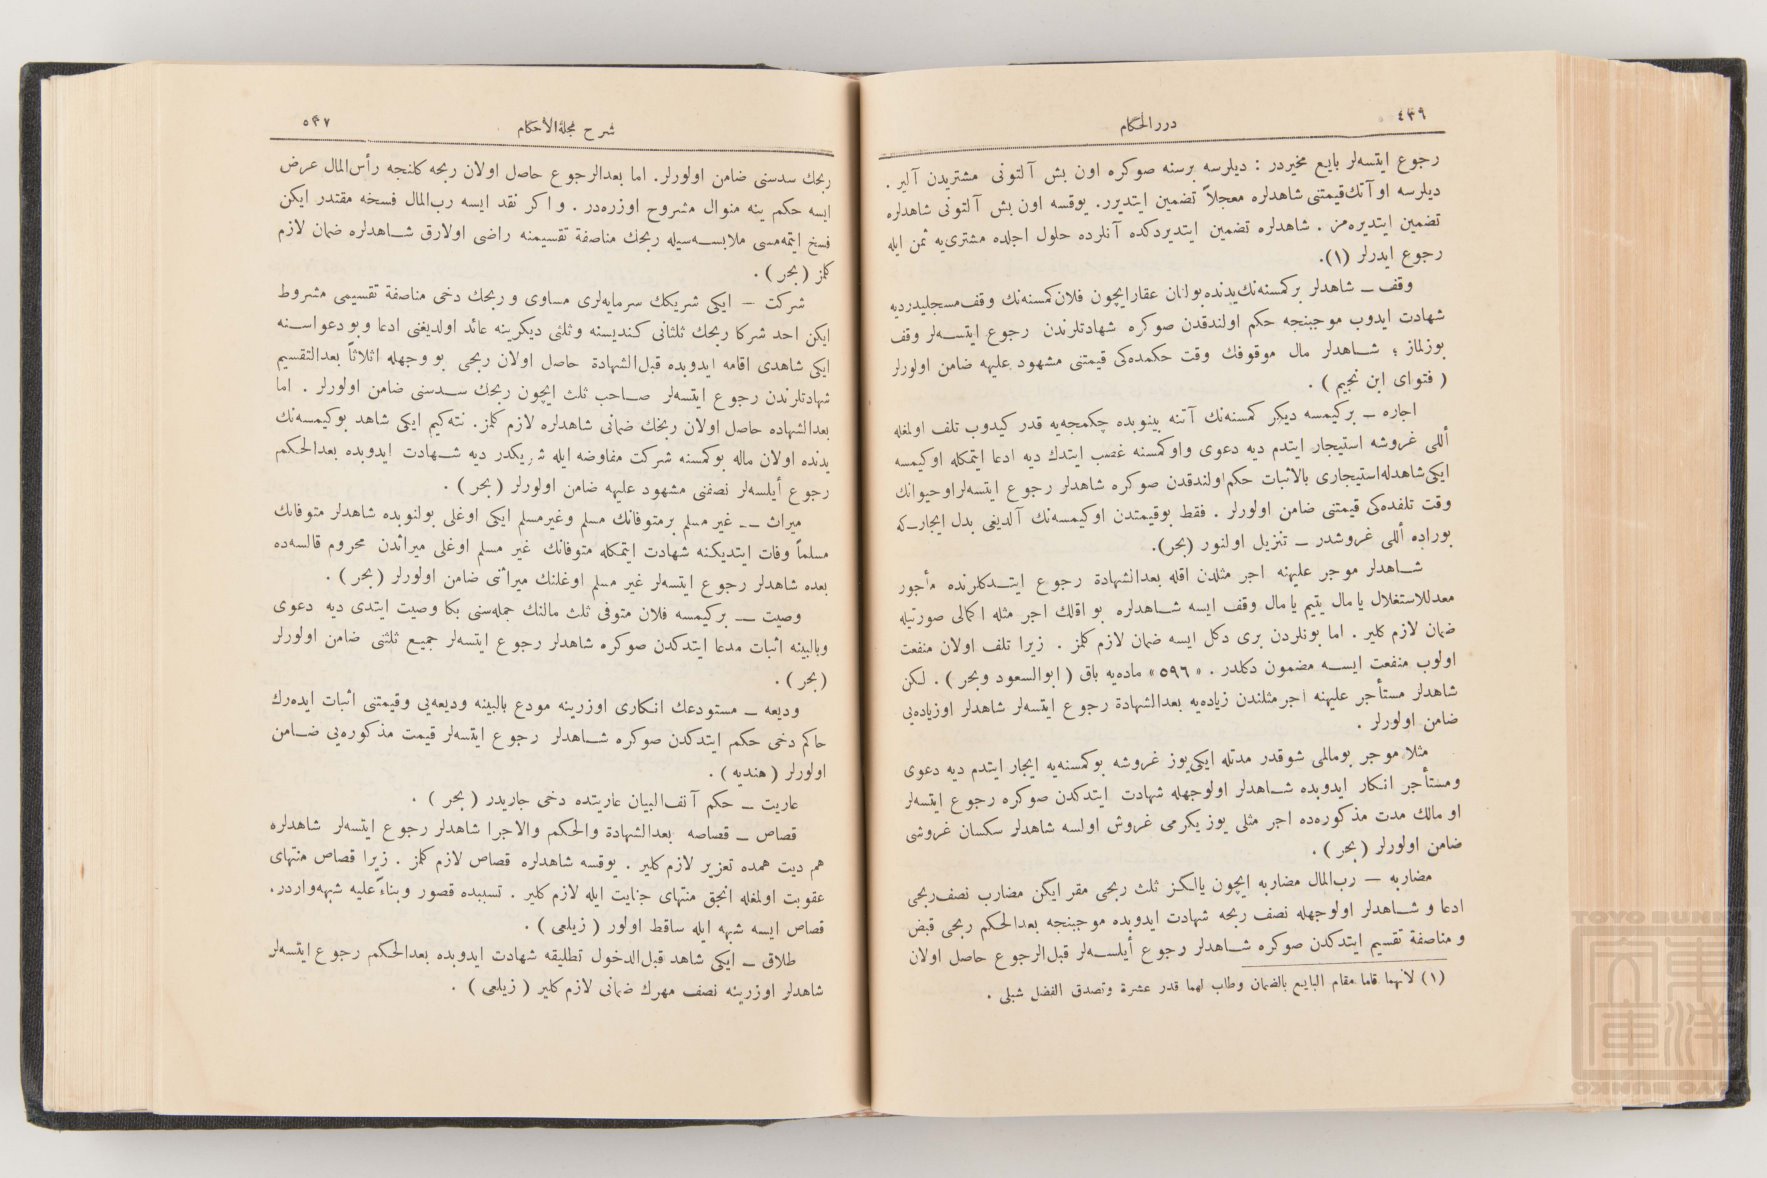 ٤٣٩
دررالحكام
رجوع ايتسه‌لر بايع مخيردر : ديلرسه برسنه صوكره اون بش آلتونى مشتريدن آلير .
ديلرسه اوآتك قيمتنى شاهدلره معجلاً تضمين ايتديرر . يوقسه اون بش آلتونى شاهدلره
تضمين ايتديره‌مز . شاهدلره تضمين ايتديردكده آنلرده حلول اجلده مشترى‌يه ثمن ايله
رجوع ايدرلر (١).
وقف ــ شاهدلر بركمسنه‌نك يدنده بولنان عقارايچون فلان كمسنه‌نك وقف مسجليدرديه
شهادت ايدوب موجبنجه حكم اولندقدن صوكره شهادتلرندن رجوع ايتســه‌لر وقف
بوزلماز ؛ شــاهدلر مال موقوفك وقت حكمده‌كى قيمتنى مشهود عليهه ضامن اولورلر
( فتواى ابن نجيم ) .
اجاره ــ بركيمسه ديكر كمسنه‌نك آتنه بينوبده چكمجه‌يه قدر كيدوب تلف اولمغله
أللى غروشه استيجار ايتدم ديه دعوى واوكمسنه غصب ايتدك ديه ادعا ايتمكله اوكيمسه
ايكى شاهدله استيجارى بالاثبات حكم اولندقدن صوكره شاهدلر رجوع ايتسه‌لر اوحيوانك
وقت تلفده‌كى قيمتنى ضامن اولورلر . فقط بوقيمتدن اوكيمسه‌نك آلديغى بدل ايجار ــ كه
بوراده أللى غروشدر ــ تنزيل اولنور (بحر).
شــاهدلر موجر عليهنه اجر مثلدن اقله بعدالشهادة رجوع ايتــدكلرنده مأجور
معدللاستغلال يا مال يتيم يا مال وقف ايسه شــاهدلره بو اقلك اجر مثله اكمالى صورتيله
ضمان لازم كلير . اما بونلردن برى دكل ايسه ضمان لازم كلمز . زيرا تلف اولان منفعت
اولوب منفعت ايســه مضمون دكلدر . « ٥٩٦ » ماده‌يه باق ( ابوالسعود وبحر ) . لكن
شاهدلر مستأجر عليهنه اجر مثلندن زياده‌يه بعدالشهادة رجوع ايتسه‌لر شاهدلر اوزياده‌يى
ضامن اولورلر .
مثلا موجر بومالمى شوقدر مدتله ايكى يوز غروشه بوكمسنه‌يه ايجار ايتدم ديه دعوى
ومستأجر انكار ايدوبده شــاهدلر اولوجهله شهادت ايتدكدن صوكره رجوع ايتسه‌لر
او مالك مدت مذكوره‌ده اجر مثلى يوز يكرمى غروش اولسه شاهدلر سكسان غروشى
ضامن اولورلر ( بحر ) .
مضاربه ــ رب‌المال مضاربه ايچون يالكز ثلث ربحى مقر ايكن مضارب نصف ربحى
ادعا و شــاهدلر اولوجهله نصف ربحه شهادت ايدوبده موجبنجه بعدالحكم ربحى قبض
و مناصفة تقسيم ايتدكدن صوكره شــاهدلر رجوع أيلســه‌لر قبل‌الرجوع حاصل اولان
(١) لانهما قاما مقام البايع بالضمان وطاب لهما قدر عشرة وتصدق الفضل شبلى .
٥٣٧
شرح مجلة الأحكام
ربحك سدسنى ضامن اولورلر. اما بعدالرجوع حاصل اولان ربحه كلنجه رأس‌المال عرض
ايسه حكم ينه منوال مشروح اوزره‌در . واكر نقد ايسه رب‌المال فسخه مقتدر ايكن
فسخ ايتمه‌مسى ملابســه‌سيله ربحك مناصفة تقسيمنه راضى اولارق شــاهدلره ضمان لازم
كلمز ( بحر ) .
شركت ــ ايكى شريكك سرمايه‌لرى مساوى وربحك دخى مناصفة تقسيمى مشروط
ايكن احد شركا ربحك ثلثانى كنديسنه وثلثى ديكرينه عائد اولديغنى ادعا وبودعواسنه
ايكى شاهدى اقامه ايدوبده قبل‌الشهادة حاصل اولان ربحى بو وجهله اثلاثاً بعدالتقسيم
شهادتلرندن رجوع ايتسه‌لر صــاحب ثلث ايچون ربحك ســدسنى ضامن اولورلر . اما
بعدالشهاده حاصل اولان ربحك ضمانى شاهدلره لازم كلمز. نته‌كيم ايكى شاهد بوكيمسه‌نك
يدنده اولان ماله بوكمسنه شركت مفاوضه ايله شريكدر ديه شــهادت ايدوبده بعدالحكم
رجوع أيلسه‌لر نصفنى مشهود عليهه ضامن اولورلر ( بحر ) .
ميراث ــ غير مسلم برمتوفانك مسلم وغيرمسلم ايكى اوغلى بولنوبده شاهدلر متوفانك
مسلماً وفات ايتديكنه شهادت ايتمكله متوفانك غير مسلم اوغلى ميراثدن محروم قالسه‌ده
بعده شاهدلر رجوع ايتسه‌لر غير مسلم اوغلنك ميراثنى ضامن اولورلر ( بحر ) .
وصيت ــ بركيمسه فلان متوفى ثلث مالنك جمله‌سنى بكا وصيت ايتدى ديه دعوى
وبالبينه اثبات مدعا ايتدكدن صوكره شاهدلر رجوع ايتسه‌لر جميع ثلثنى ضامن اولورلر
( بحر ) .
وديعه ــ مستودعك انكارى اوزرينه مودع بالبينه وديعه‌يى وقيمتنى اثبات ايده‌رك
حاكم دخى حكم ايتدكدن صوكره شــاهدلر رجوع ايتسه‌لر قيمت مذكوره‌يى ضــامن
اولورلر ( هنديه ) .
عاريت ــ حكم آنف‌البيان عاريتده دخى جاريدر ( بحر ) .
قصاص ــ قصاصه بعدالشهادة والحكم والاجرا شاهدلر رجوع ايتسه‌لر شاهدلره
هم ديت همده تعزير لازم كلير . يوقسه شاهدلره قصاص لازم كلمز . زيرا قصاص منتهاى
عقوبت اولمغله انجق منتهاى جنايت ايله لازم كلير . تسببده قصور وبناءً عليه شبهه واردر.
قصاص ايسه شبهه ايله ساقط اولور ( زيلعى ) .
طلاق ــ ايكى شاهد قبل‌الدخول تطليقه شهادت ايدوبده بعدالحكم رجوع ايتسه‌لر
شاهدلر اوزرينه نصف مهرك ضمانى لازم كلير ( زيلعى ) .
TOYO BUNKO
東洋文庫
TOYO BUNKO